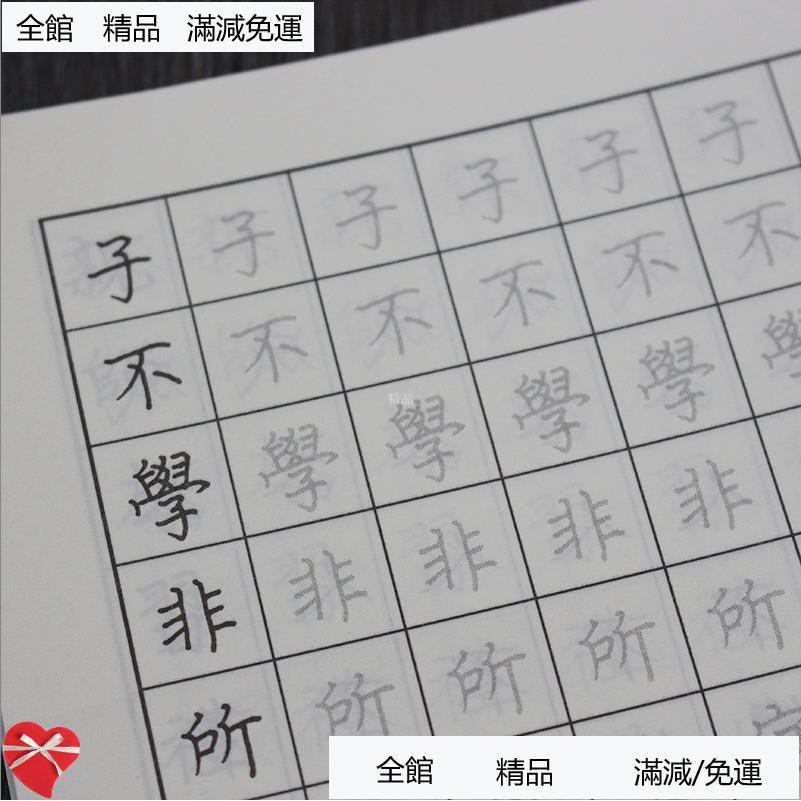 全館 精品 滿減免運
子 子 子 子 子 子
不 不 不 不 不 不
學 學 學 學 學 學
非 非 非 非 非
所 所 所 所 所
精品
全館 精品 滿減/免運